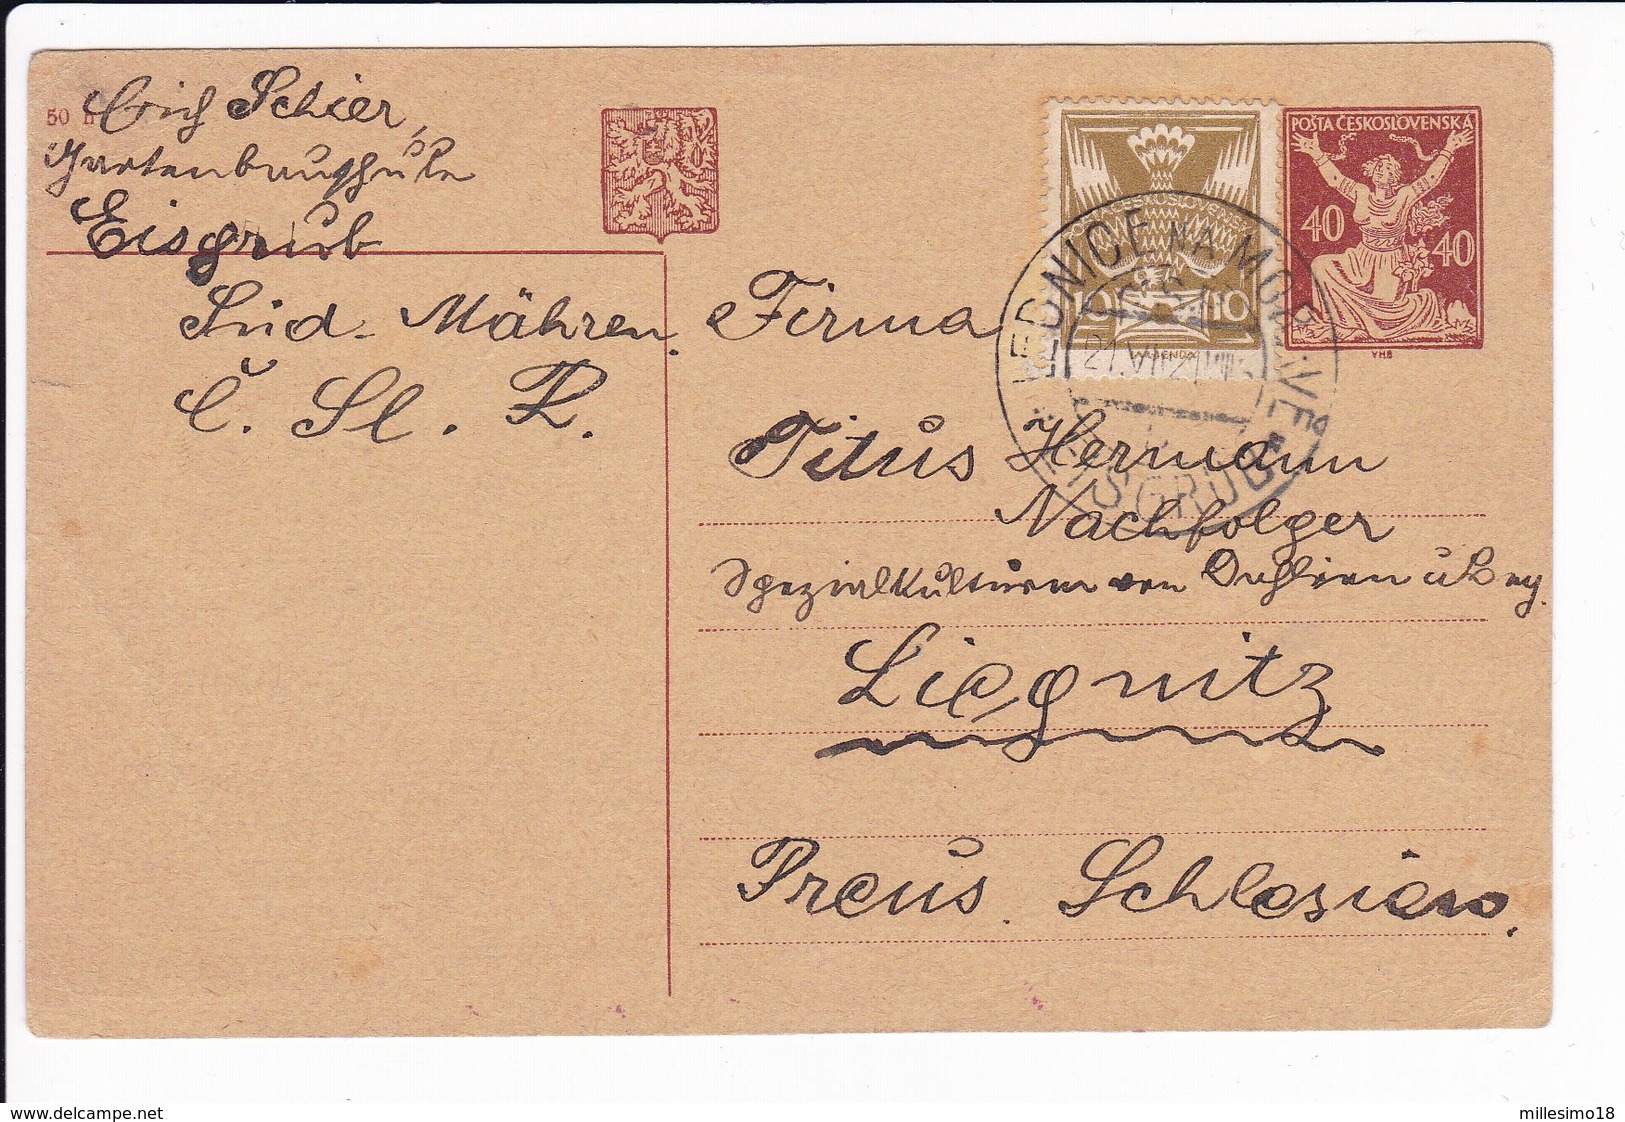 50 h
Erich Schier,
Gartenbauschule
Eisgrub
Süd-Mähren.
Č. Sl. R.
POŠTA ČESKOSLOVENSKÁ
40 40
VHB
POŠTA ČESKOSLOVENSKÁ
10 10
LEDNICE NA MORAVĚ
21.VII.21
EISGRUB
Firma
Titus Hermann
Nachfolger
Spezialkulturen von Dahlien u
Liegnitz
Preus. Schlesien.
www.delcampe.net
millesimo18